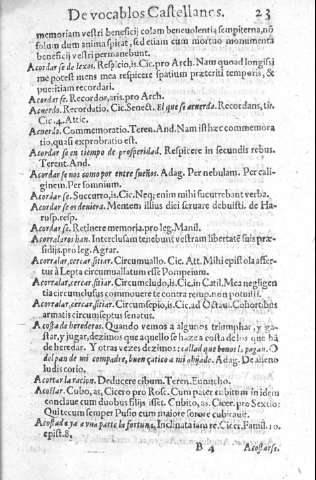 De vocablos Castellanos. 23
memoriam vestri beneficij colam beneuolentia sempiterna, nõ
solum dum anima spirat, sed etiam cum mortuo monumenta
beneficij vestri permanebunt.
Acordar se de lexos. Respicio, is. Cic. pro Arch. Nam quoad longissi
me potest mens mea respicere spatium præteriti temporis, &
pueritiam recordari.
Acordar se. Recordor, aris. pro Arch.
Acuerdo. Recordatio. Cic. Senect. El que se acuerda. Recordans, tis.
Cic. 4. Attic.
Acuerdo. Commemoratio. Teren. And. Nam isthæc commemora
tio, quasi exprobratio est.
Acordar se en tiempo de prosperidad. Respicere in secundis rebus.
Terent. And.
Acordar se nos como por entre sueños. Adag. Per nebulam. Per cali-
ginem. Per somnium.
Acordar se. Succurro, is. Cic. Neq; enim mihi succurrebant verba.
Acordar se en deuiera. Mentem illius dici seruare debuisti. de Ha-
rusp. resp.
Acordar se. Retinere memoria. pro leg. Manil.
Acorralaros han. Interclusam tenebunt vestram libertatē suis præ-
sidijs. pro leg. Agrar.
Acorralar, cercar, sitiar. Circumuallo. Cic. Att. Mihi epistola affer-
tur à Lepta circumuallatum esse Pompeium.
Acorralar, cercar, sitiar. Circumcludo, is. Cic. in Catil. Mea negligen
tia circumclusus commouere te contra remp. non potuisti.
Acorralar, cercar, sitiar. Circumsepio, is. Cic. ad Octau. Cohortibus
armatis circumseptus senatus.
A costa de herederos. Quando vemos a algunos triumphar, y ga-
star, y jugar, dezimos que aquello se haze a costa de los que hã
de heredar. Y otras vezes dezimos: callad que bouos lo pagan. O
del pan de mi compadre, buen çatico a mi ahijado. Adag. De alieno
ludis corio.
Acortar la racion. Deducere cibum. Teren. Eunucho.
Acostar. Cubo, as, Cicero pro Rosc. Cum pater cubitum in idem
conclaue cum duobus filijs isset. Cubito, as. Cicer. pro Sextio:
Qui tecum semper Pusio cum maiore sorore cubitauit.
Acostada ya a vna parte la fortuna. Inclinata iam re. Cicer. Famil. 10.
epist. 8.
B 4 Acostarse.